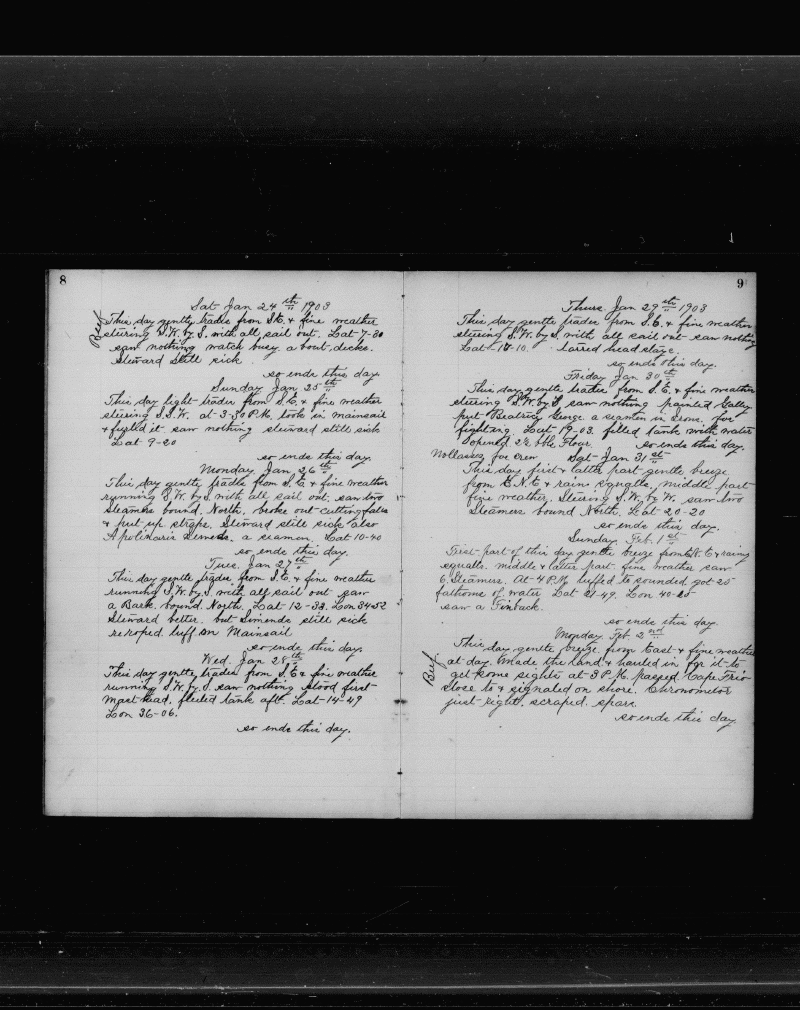 8
Sat Jan 24 th 1903
Beef
This day gentle trades from S.E. & fine weather
steering S.W. by S. with all sail out. Lat-7-30
saw nothing watch busy a bout, decks.
Steward still sick
so ends this day
Sunday Jan 25 th
This day light trades from S.E. & fine weather
steering S.S.W. at-3-30 P.M. took in mainsail
& furled it saw nothing steward still sick
Lat 9-20
so ends this day.
Monday Jan 26 th
This day gentle trades from S.E. & fine weather
running S.W. by S. with all sail out. saw two
Steamers bound North. broke out cutting falls
& put up straps, Steward still sick also
Apolinario a seaman. Lat 10-40
so ends this day.
Tues. Jan 27 th
This day gentle trades from S.E. & fine weather
running S.W. by S. with all sail out saw
a Bark bound North. Lat-12-33. Lon 34-52
Steward better. but Simends still sick
luff on Mainsail
so ends this day.
Wed. Jan 28 th
This day gentle trades from S.E. & fine weather
running S.W. by S. saw nothing first
Mast head, tank aft. Lat-14-49
Lon 36-06.
so ends this day.
9
Thurs. Jan 29 th 1903
This day gentle trades from S.E. & fine weather
steering S.W. by S. with all sail out saw nothing
Lat-17-10. Tarred head stays.
so ends this day.
Friday Jan 30 th
This day gentle trades from S.E. & fine weather
steering S.W. by S saw nothing painted Galley
put Beatriz George a seaman in Irons. for
fighting. Lat 19-03. filled tank with water
opened 2½ bbl Flour. so ends this day.
Mollasses for crew Sat Jan 31 st
This day first & latter part gentle breeze
from E.N.E. & rain squalls, middle part
fine weather, Steering S.W. by W. saw two
Steamers bound North. Lat 20-20
so ends this day.
Sunday Feb. 1 st
First part of this day gentle breeze from N.E & rainy
squalls. middle & latter part fine weather saw
6 Steamers. At-4 P.M. luffed to sounded got 25
fathoms of water Lat 21-49. Lon 40-25
saw a Finback.
so ends this day.
Monday Feb. 2 nd
Beef
This day gentle breeze from East & fine weather
at day. Made the land & hauled in for it to
get some sights at 3 P.M. passed Cape Frio
close to & signaled on shore. Chronometer
just right. scraped spars
so ends this day